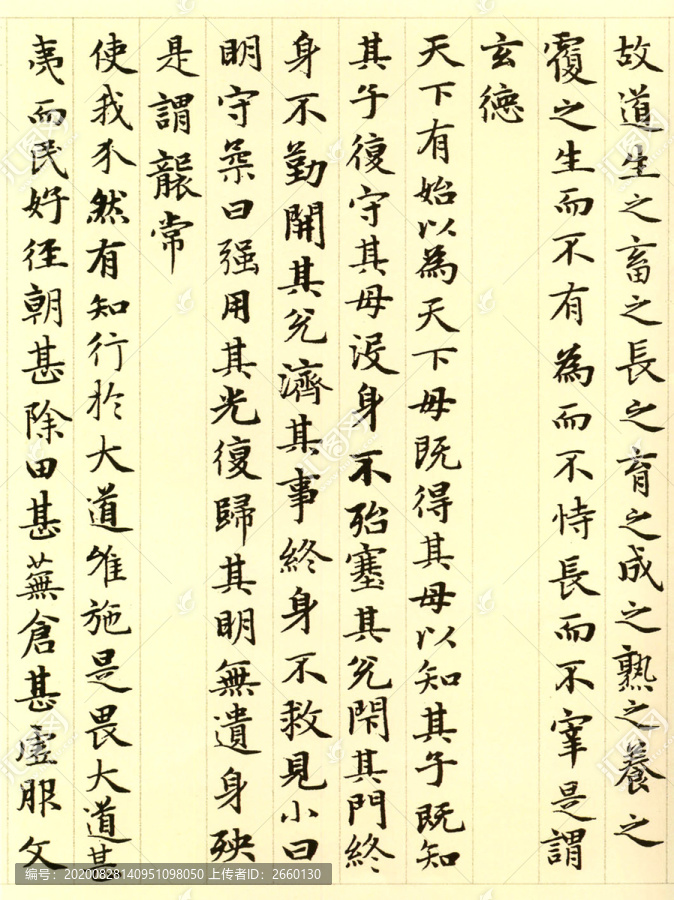 故道生之畜之長之育之成之熟之養之
覆之生而不有為而不恃長而不宰是謂
玄德
天下有始以為天下母既得其母以知其子既知
其子復守其母没身不殆塞其兌閇其門終
身不勤開其兌濟其事終身不救見小曰
明守柔曰强用其光復歸其明無遺身殃
是謂襲常
使我介然有知行於大道唯施是畏大道甚
夷而民好徑朝甚除田甚蕪倉甚虛服文
编号：20200828140951098050 上传者ID：2660130